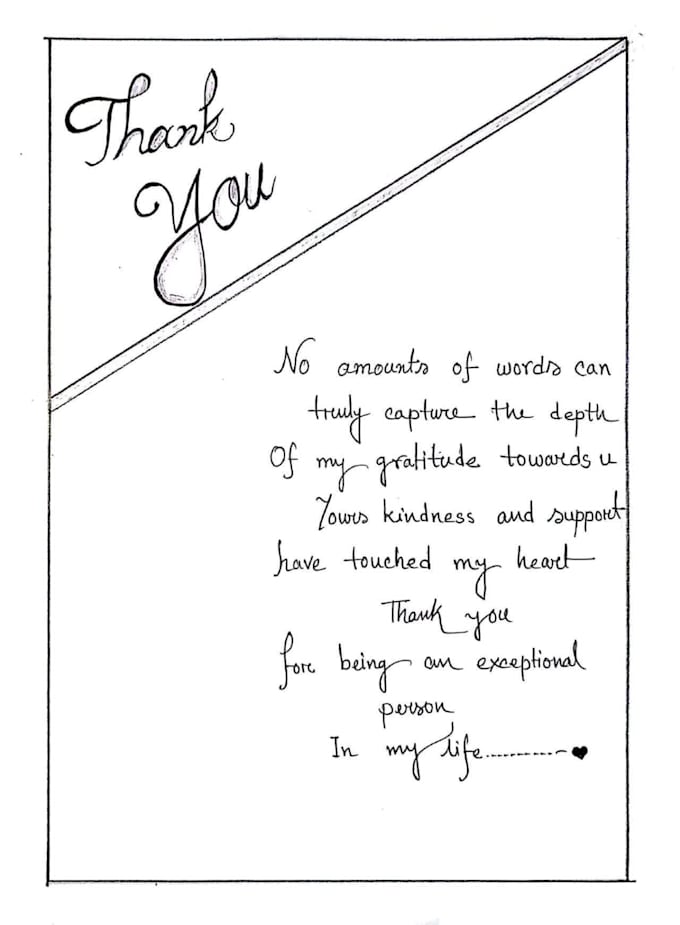 Thank
You
No amounts of words can
truly capture the depth
Of my gratitude towards u
Yours kindness and support
have touched my heart
Thank you
fore being an exceptional
person
In my life...........-♥